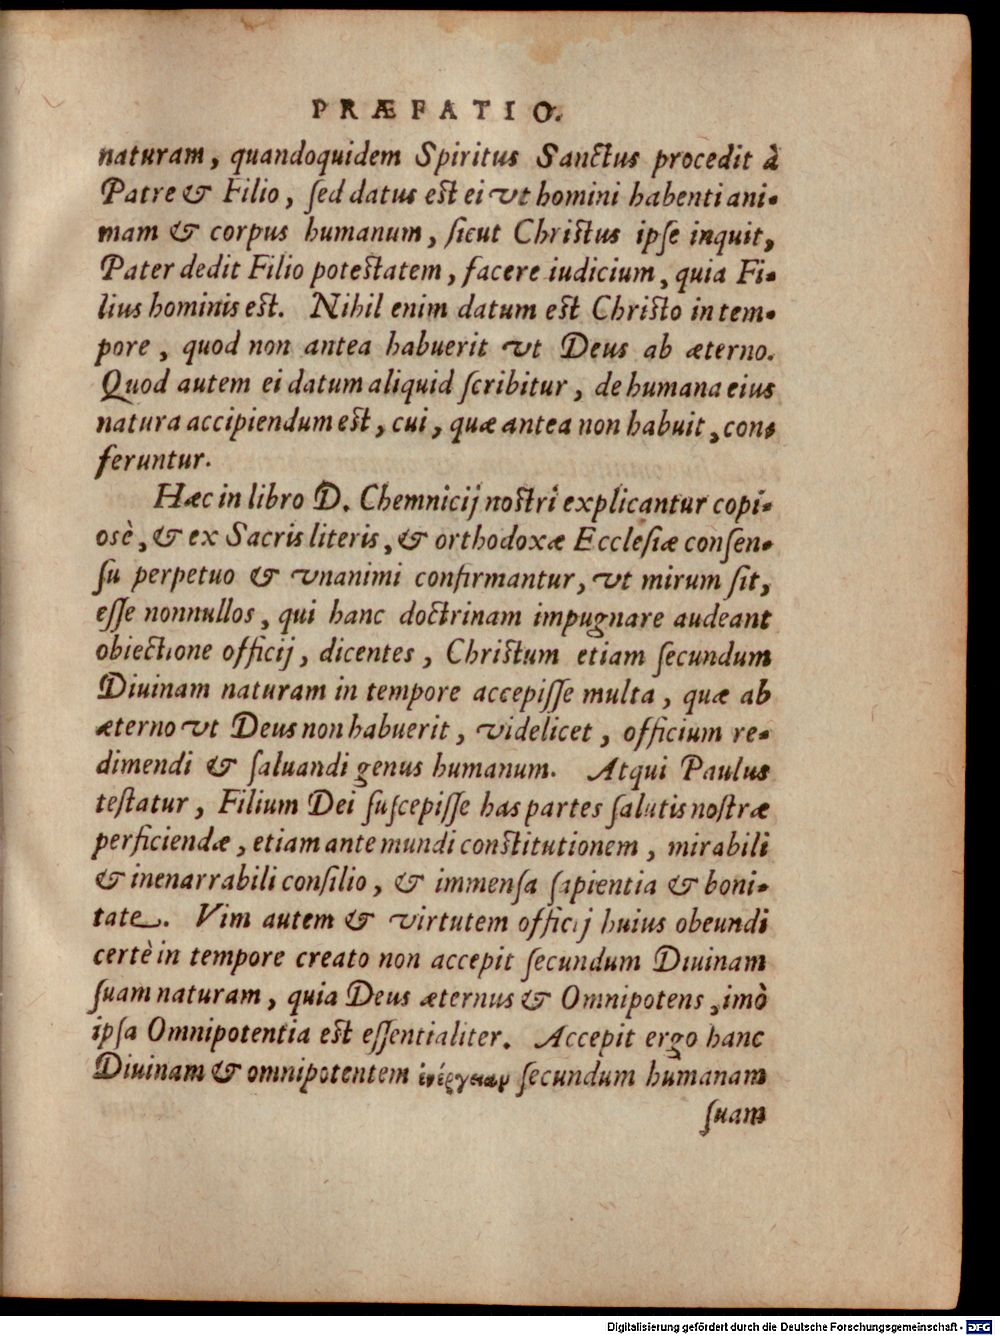 PRÆFATIO.
naturam, quandoquidem Spiritus Sanctus procedit à
Patre & Filio, ſed datus est ei vt homini habenti ani-
mam & corpus humanum, ſicut Christus ipſe inquit,
Pater dedit Filio potestatem, facere iudicium, quia Fi-
lius hominis est. Nihil enim datum est Christo in tem-
pore, quod non antea habuerit vt Deus ab æterno.
Quod autem ei datum aliquid ſcribitur, de humana eius
natura accipiendum est, cui, quæ antea non habuit, con-
feruntur.
Hæc in libro D. Chemnicij nostri explicantur copi-
osè, & ex Sacris literis, & orthodoxæ Eccleſiæ conſen-
ſu perpetuo & vnanimi confirmantur, vt mirum ſit,
eſſe nonnullos, qui hanc doctrinam impugnare audeant
obiectione officij, dicentes, Christum etiam ſecundum
Diuinam naturam in tempore accepiſſe multa, quæ ab
æterno vt Deus non habuerit, videlicet, officium re-
dimendi & ſaluandi genus humanum. Atqui Paulus
teſtatur, Filium Dei ſuſcepiſſe has partes ſalutis noſtræ
perficiendæ, etiam ante mundi constitutionem, mirabili
& inenarrabili conſilio, & immenſa ſapientia & boni-
tate. Vim autem & virtutem officij huius obeundi
certè in tempore creato non accepit ſecundum Diuinam
ſuam naturam, quia Deus æternus & Omnipotens, imò
ipſa Omnipotentia est eſſentialiter. Accepit ergo hanc
Diuinam & omnipotentem ἐνέργειαν ſecundum humanam
ſuam
Digitalisierung gefördert durch die Deutsche Forschungsgemeinschaft - DFG